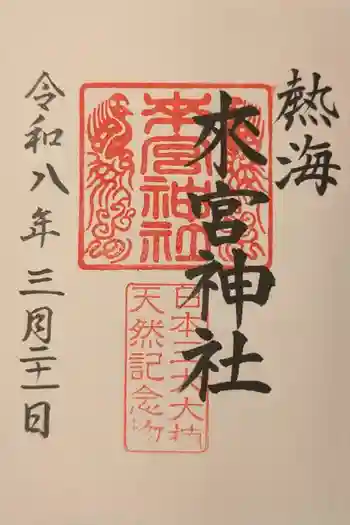 熱海
來宮神社
令和八年三月二十一日
來宮神社
日本三大大楠
天然記念物